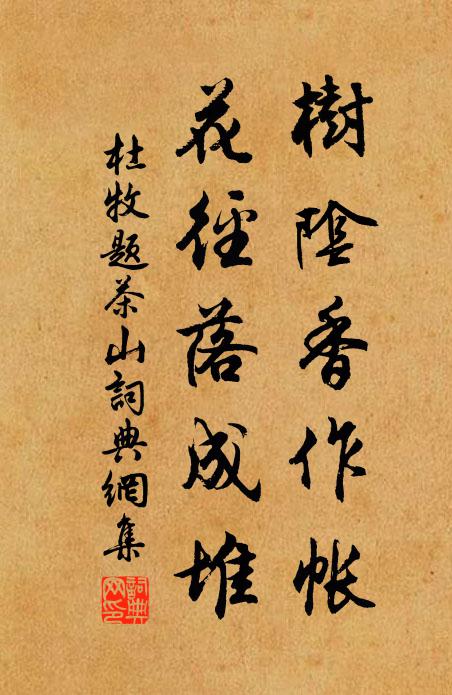 樹陰香作帳
花徑落成堆
杜牧題茶山詞典網集
詞典网印